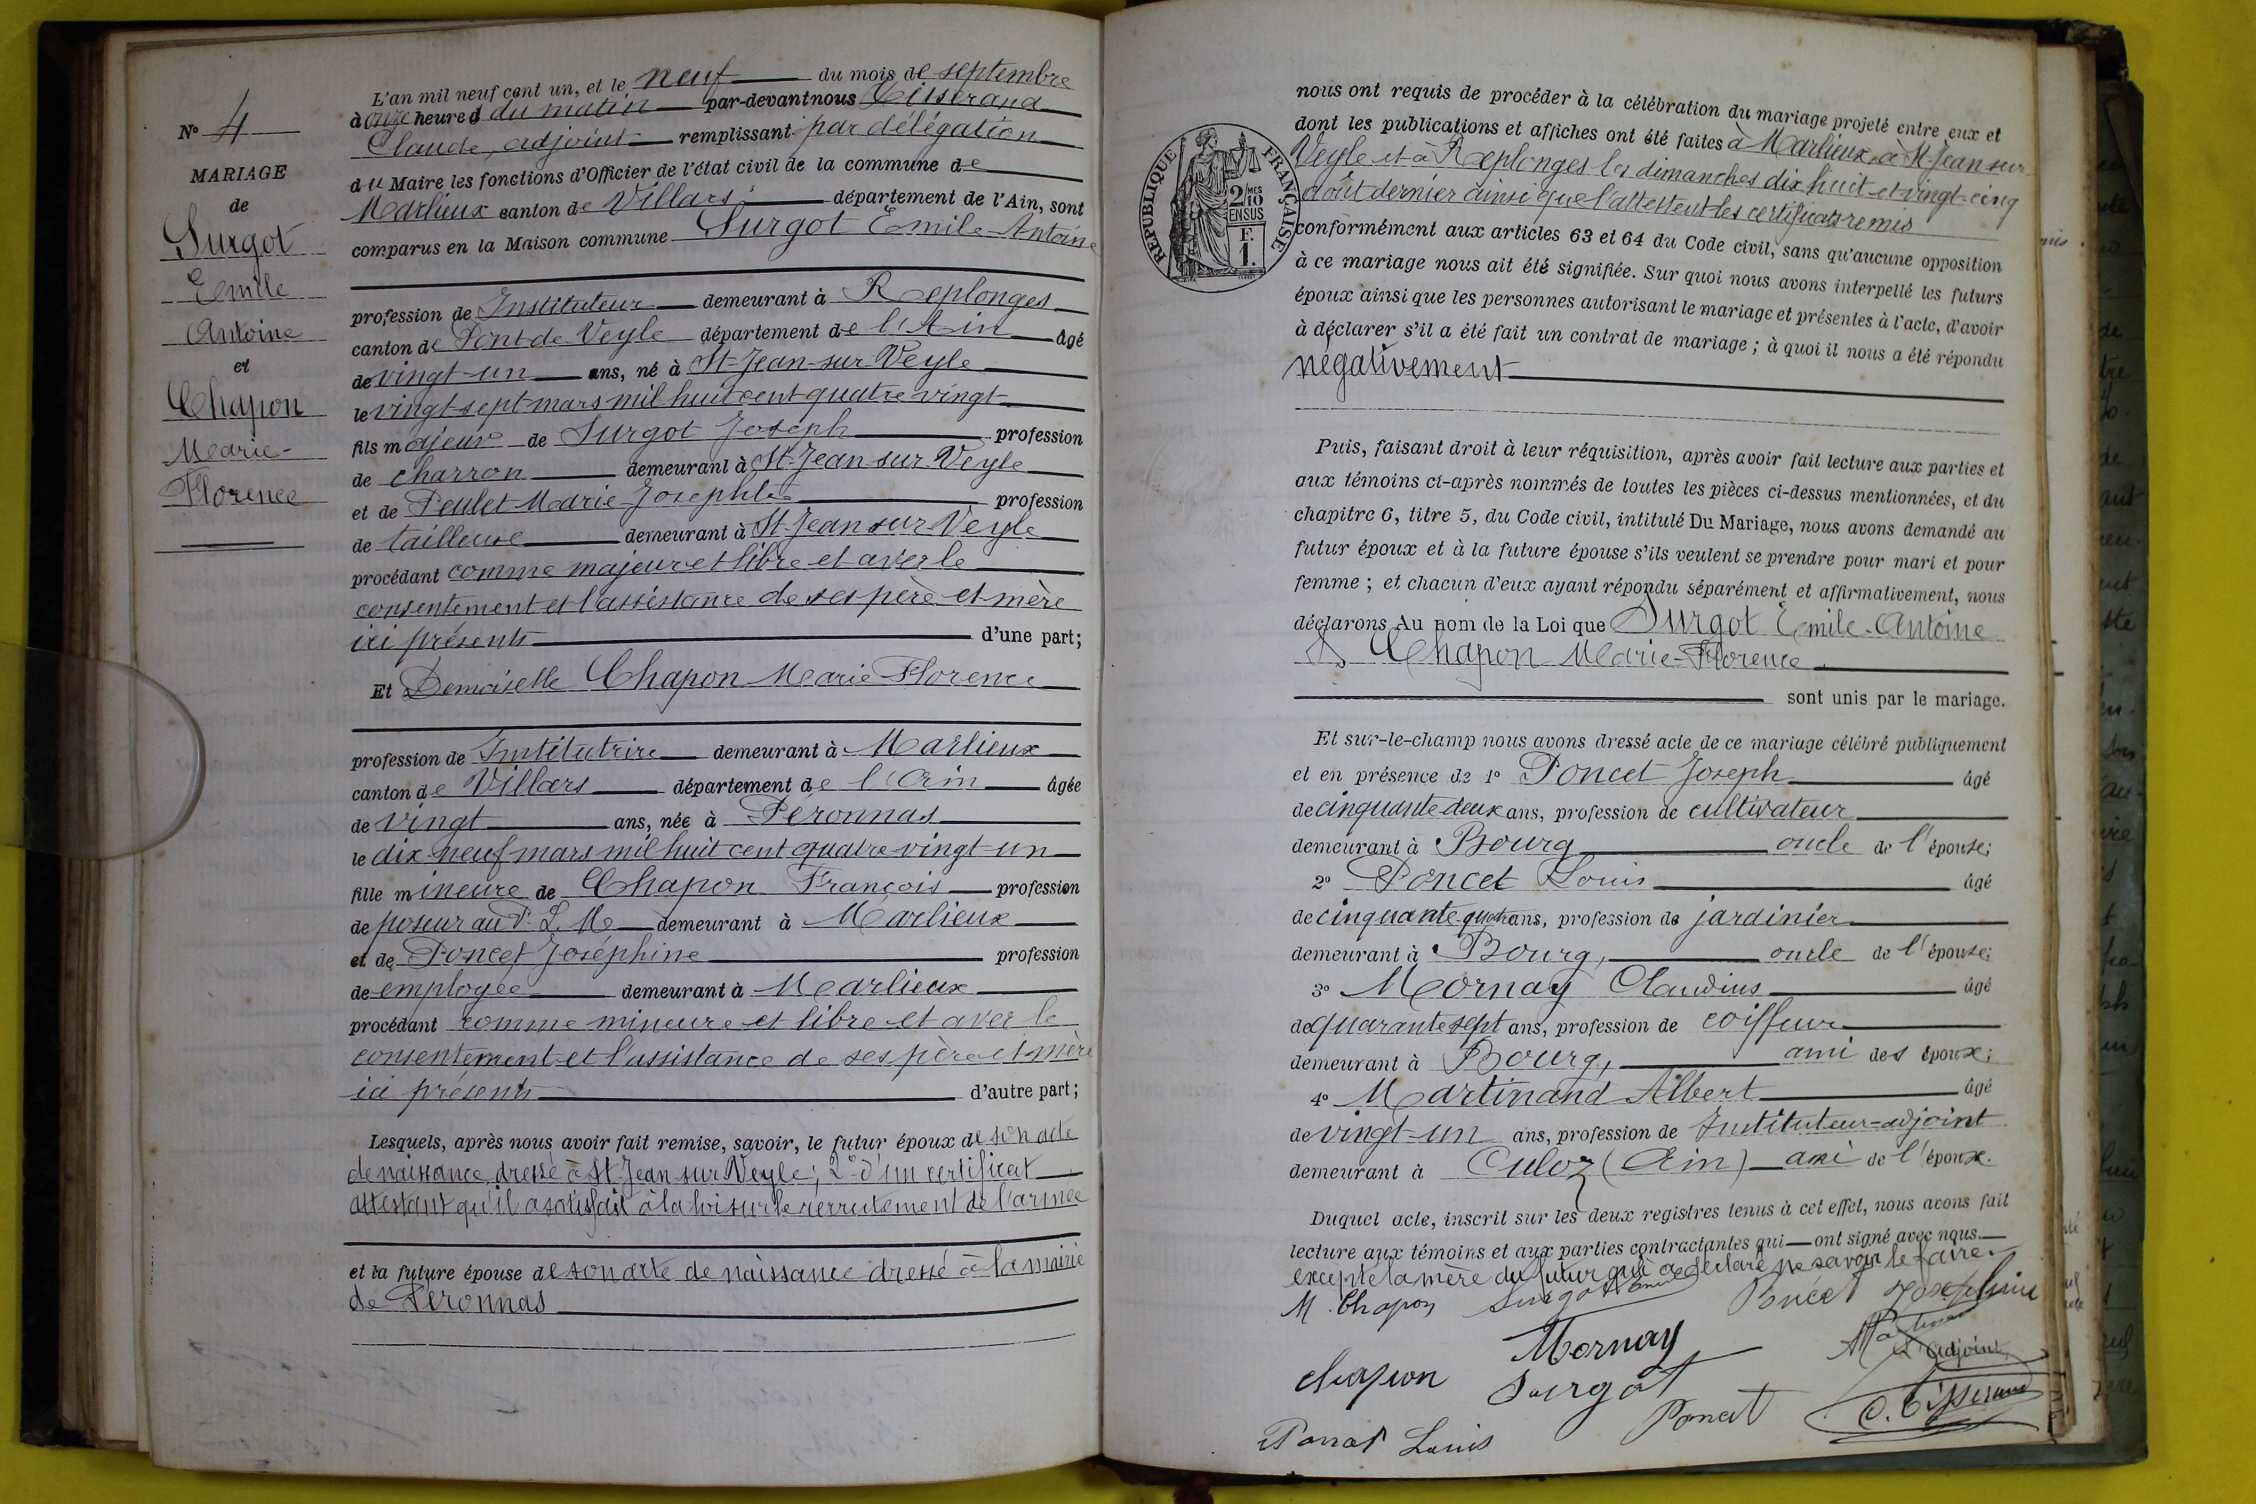 N° 4
MARIAGE
de
Surgot
Emile
Antoine
et
Chapon
Marie-
Florence
L'an mil neuf cent un, et le neuf du mois de septembre
à onze heures du matin par-devant nous Tisserand
Claude, adjoint remplissant par délégation
du Maire les fonctions d'Officier de l'état civil de la commune de
Marlieux canton de Villars département de l'Ain, sont
comparus en la Maison commune Surgot Emile-Antoine
profession de Instituteur demeurant à Replonges
canton de Pont de Veyle département de l'Ain âgé
de vingt-un ans, né à St-Jean-sur-Veyle
le vingt-sept mars mil huit cent quatre vingt
fils majeur de Surgot Joseph profession
de charron demeurant à St-Jean-sur-Veyle
et de Peulet Marie Josephte profession
de tailleuse demeurant à St-Jean sur Veyle
procédant comme majeur et libre et avec le
consentement et l'assistance de ses père et mère
ici présents d'une part;
Et Demoiselle Chapon Marie Florence
profession de Institutrice demeurant à Marlieux
canton de Villars département de l'Ain âgée
de vingt ans, née à Péronnas
le dix-neuf mars mil huit cent quatre-vingt-un
fille mineure de Chapon François profession
de poseur au P. L. M. demeurant à Marlieux
et de Poncet Joséphine profession
de employée demeurant à Marlieux
procédant comme mineure et libre et avec le
consentement et l'assistance de ses père et mère
ici présents d'autre part;
Lesquels, après nous avoir fait remise, savoir, le futur époux de son acte
de naissance dressé à St Jean sur Veyle; 2° d'un certificat
attestant qu'il a satisfait à la loi sur le recrutement de l'armée
et la future épouse de son acte de naissance dressé à la mairie
de Péronnas
RÉPUBLIQUE FRANÇAISE
2/10 MES
EN SUS
F.
1.
nous ont requis de procéder à la célébration du mariage projeté entre eux et
dont les publications et affiches ont été faites à Marlieux, à St-Jean sur
Veyle et à Replonges les dimanches dix huit et vingt-cinq
août dernier ainsi que l'attestent les certificats remis
conformément aux articles 63 et 64 du Code civil, sans qu'aucune opposition
à ce mariage nous ait été signifiée. Sur quoi nous avons interpellé les futurs
époux ainsi que les personnes autorisant le mariage et présentes à l'acte, d'avoir
à déclarer s'il a été fait un contrat de mariage; à quoi il nous a été répondu
négativement
Puis, faisant droit à leur réquisition, après avoir fait lecture aux parties et
aux témoins ci-après nommés de toutes les pièces ci-dessus mentionnées, et du
chapitre 6, titre 5, du Code civil, intitulé Du Mariage, nous avons demandé au
futur époux et à la future épouse s'ils veulent se prendre pour mari et pour
femme; et chacun d'eux ayant répondu séparément et affirmativement, nous
déclarons Au nom de la Loi que Surgot Emile-Antoine
& Chapon Marie-Florence
sont unis par le mariage.
Et sur-le-champ nous avons dressé acte de ce mariage célébré publiquement
et en présence de 1° Poncet Joseph âgé
de cinquante-deux ans, profession de cultivateur
demeurant à Bourg oncle de l'épouse;
2° Poncet Louis âgé
de cinquante-quatre ans, profession de jardinier
demeurant à Bourg, oncle de l'épouse;
3° Mornay Claudius âgé
de quarante sept ans, profession de coiffeur
demeurant à Bourg, ami des époux;
4° Martinand Albert âgé
de vingt-un ans, profession de Instituteur-adjoint
demeurant à Culoz (Ain) ami de l'époux.
Duquel acte, inscrit sur les deux registres tenus à cet effet, nous avons fait
lecture aux témoins et aux parties contractantes qui ont signé avec nous
excepté la mère du futur qui a déclaré ne savoir le faire.
M. Chapon Surgot Emile Poncet Joséphine
Mornay
L'adjoint,
Chapon Surgot
Poncet C. Tisserand
Poncet Louis